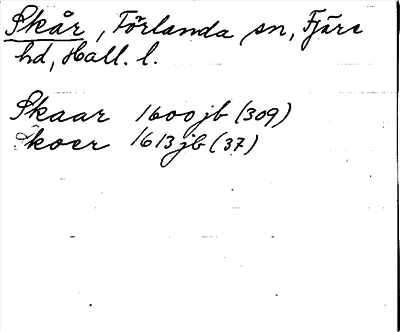 Skår, Förlanda sn, Fjäre
hd, Hall. l.
Skaar 1600 jb (309)
Skoer 1613 jb (37)